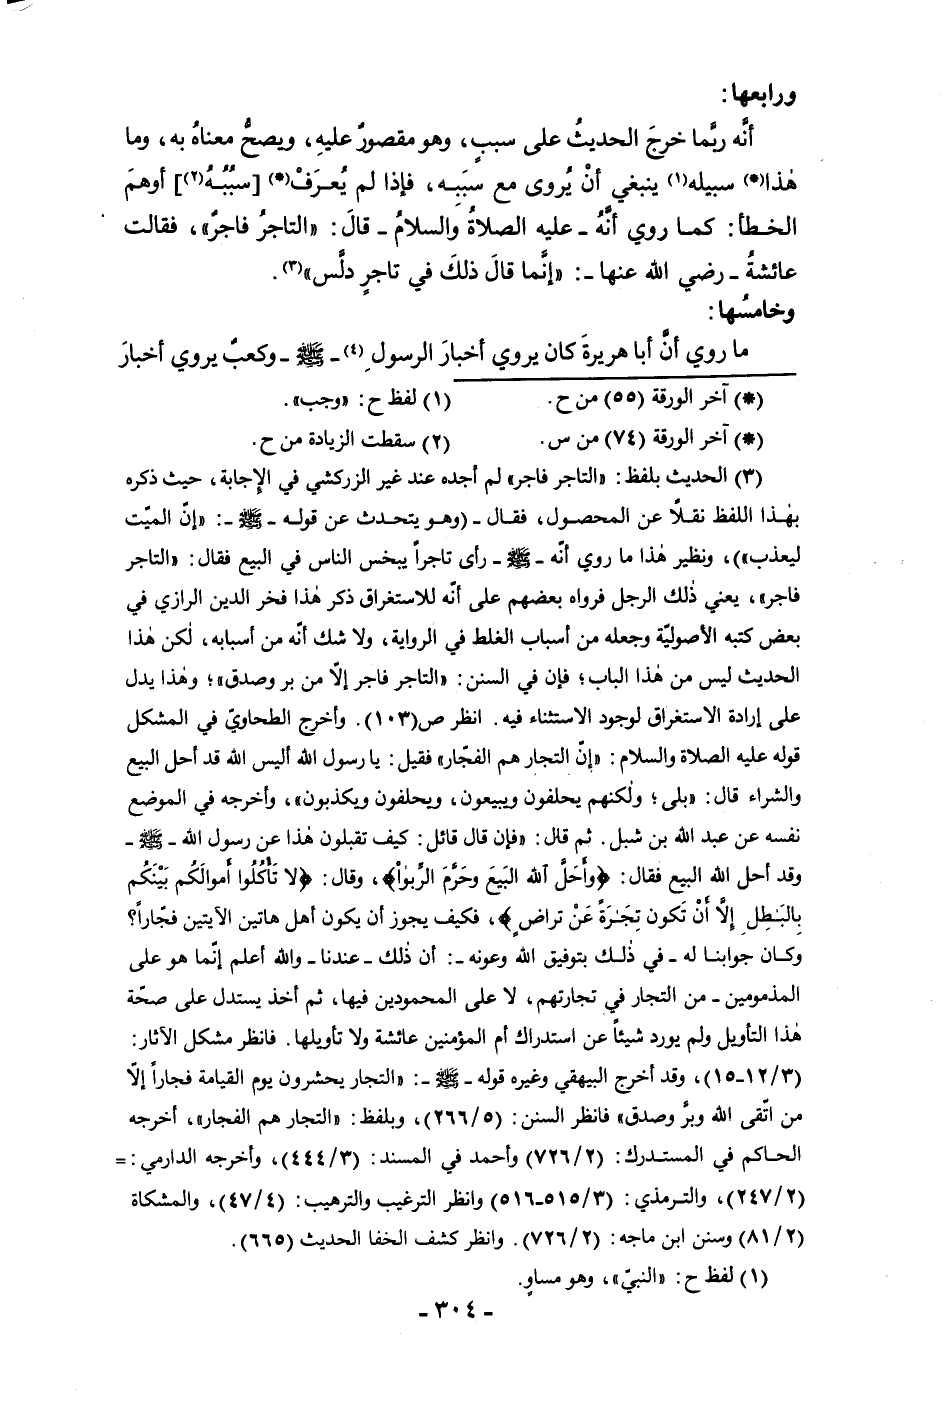 ورابعها:
أنَّه ربَّما خرجَ الحديثُ على سببٍ، وهو مقصورٌ عليهِ، ويصحُّ معناهُ به، وما
هٰذا(*) سبيله(١) ينبغي أنْ يُروى مع سبَبِه، فإذا لم يُعرَفْ(*) [سبَبُهُ(٢)] أوهمَ
الخطأ: كما روي أنَّهُ ـ عليه الصلاةُ والسلامُ ـ قالَ: «التاجرُ فاجرٌ»، فقالت
عائشةُ ـ رضي الله عنها ـ: «إنَّما قالَ ذلكَ في تاجرٍ دلَّس»(٣).
وخامسُها:
ما روي أنَّ أبا هريرةَ كان يروي أخبارَ الرسولِ(٤) ـ ﷺ ـ وكعبٌ يروي أخبارَ
(*) آخر الورقة (٥٥) من ح. (١) لفظ ح: «وجب».
(*) آخر الورقة (٧٤) من س. (٢) سقطت الزيادة من ح.
(٣) الحديث بلفظ: «التاجر فاجر» لم أجده عند غير الزركشي في الإجابة، حيث ذكره
بهٰذا اللفظ نقلاً عن المحصول، فقال ـ (وهو يتحدث عن قوله ـ ﷺ ـ: «إنّ الميّت
ليعذب»)، ونظير هٰذا ما روي أنّه ـ ﷺ ـ رأى تاجراً يبخس الناس في البيع فقال: «التاجر
فاجر»، يعني ذٰلك الرجل فرواه بعضهم على أنّه للاستغراق ذكر هٰذا فخر الدين الرازي في
بعض كتبه الأصوليّة وجعله من أسباب الغلط في الرواية، ولا شك أنّه من أسبابه، لٰكن هٰذا
الحديث ليس من هٰذا الباب؛ فإن في السنن: «التاجر فاجر إلّا من بر وصدق»؛ وهٰذا يدل
على إرادة الاستغراق لوجود الاستثناء فيه. انظر ص(١٠٣). وأخرج الطحاويّ في المشكل
قوله عليه الصلاة والسلام: «إنّ التجار هم الفجّار» فقيل: يا رسول الله أليس الله قد أحل البيع
والشراء قال: «بلى؛ ولٰكنهم يحلفون ويبيعون، ويحلفون ويكذبون»، وأخرجه في الموضع
نفسه عن عبد الله بن شبل. ثم قال: «فإن قال قائل: كيف تقبلون هٰذا عن رسول الله ـ ﷺ ـ
وقد أحل الله البيع فقال: ﴿وأَحَلَّ ٱلله البَيعَ وحَرَّمَ الرِّبَوٰاْ﴾، وقال: ﴿لا تَأْكُلُوا أموالَكُم بَيْنَكُم
بِالبَـٰطِلِ إِلَّا أَنْ تَكون تِجَـٰرَةً عَنْ تراضٍ﴾، فكيف يجوز أن يكون أهل هاتين الآيتين فجّاراً؟
وكان جوابنا له ـ في ذٰلك بتوفيق الله وعونه ـ: أن ذٰلك ـ عندنا ـ والله أعلم إنّما هو على
المذمومين ـ من التجار في تجارتهم، لا على المحمودين فيها، ثم أخذ يستدل على صحّة
هٰذا التأويل ولم يورد شيئاً عن استدراك أم المؤمنين عائشة ولا تأويلها. فانظر مشكل الآثار:
(٣/ ١٢ـ١٥)، وقد أخرج البيهقي وغيره قوله ـ ﷺ ـ: «التجار يحشرون يوم القيامة فجاراً إلّا
من اتّقى الله وبرَّ وصدق» فانظر السنن: (٥/ ٢٦٦)، وبلفظ: «التجار هم الفجار»، أخرجه
الحاكم في المستدرك: (٢/ ٧٢٦) وأحمد في المسند: (٣/ ٤٤٤)، وأخرجه الدارمي: =
(٢/ ٢٤٧)، والترمذي: (٣/ ٥١٥ـ٥١٦) وانظر الترغيب والترهيب: (٤/ ٤٧)، والمشكاة
(٢/ ٨١) وسنن ابن ماجه: (٢/ ٧٢٦). وانظر كشف الخفا الحديث (٦٦٥).
(١) لفظ ح: «النبيّ»، وهو مساوٍ.
ـ ٣٠٤ ـ